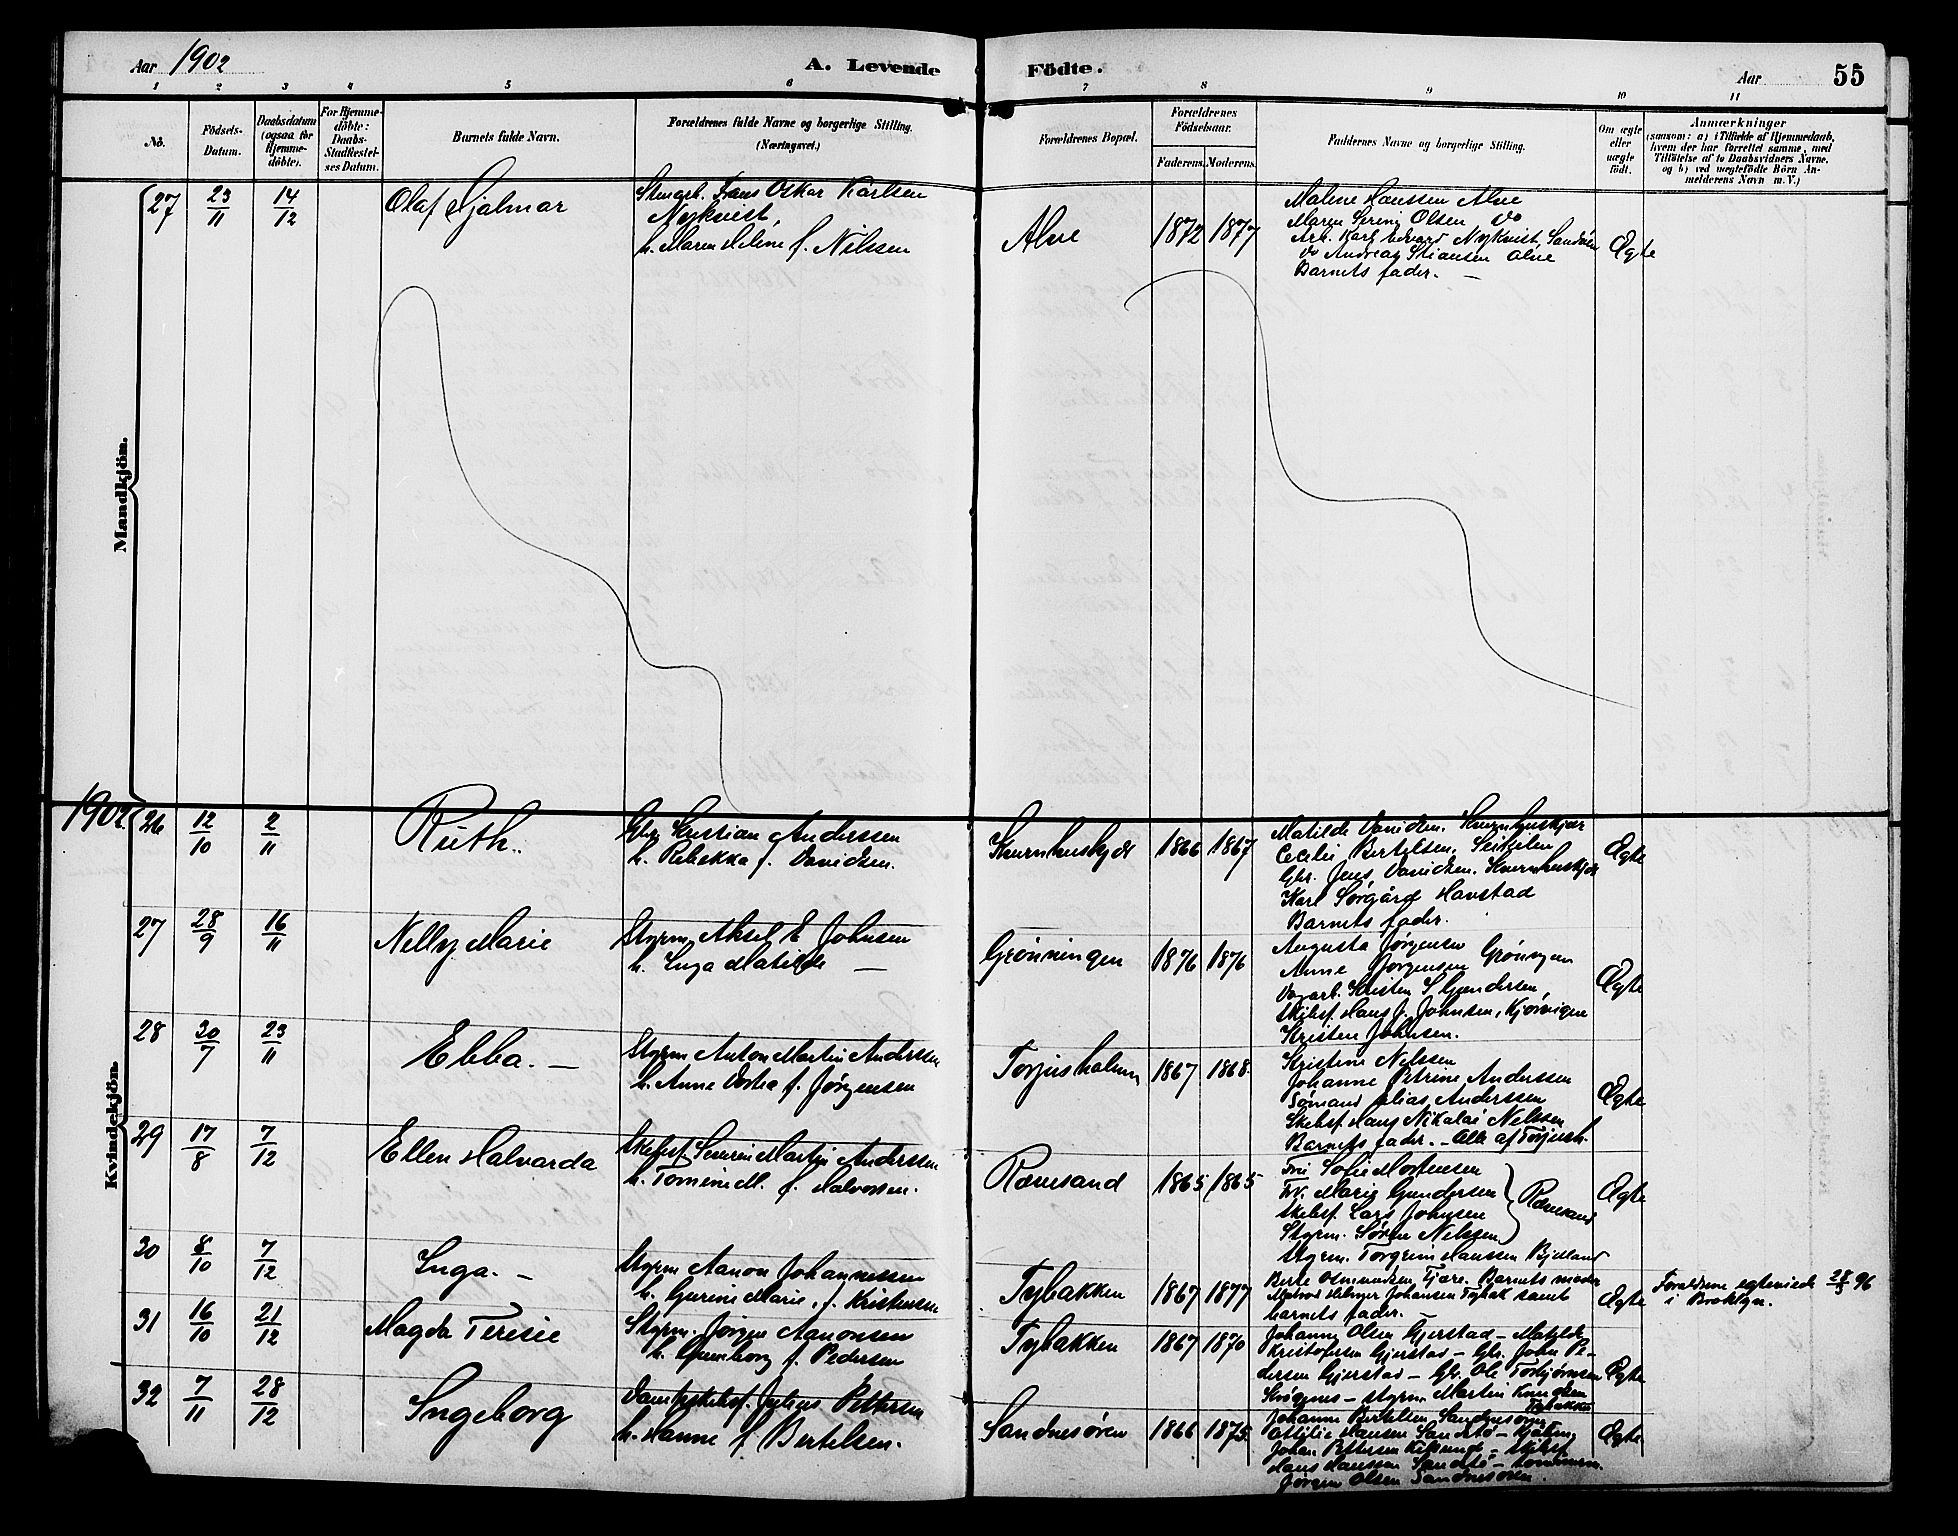 Aar 1902
A. Levende Födte.
Aar 55
1 2 3 4 5 6 7 8 9 10 11
No.
Födsels-
Datum.
Daabsdatum
(ogsaa for
Hjemme-
döbte).
For Hjemme-
döbte:
Daabs-
Stadfæstel-
ses Datum.
Barnets fulde Navn.
Forældrenes fulde Navne og borgerlige Stilling.
(Næringsvei.)
Forældrenes Bopæl.
Forældrenes
Födselsaar.
Faderens. Moderens.
Faddernes Navne og borgerlige Stilling.
Om ægte
eller
uægte
födt.
Anmærkninger
(saasom: a) i Tilfælde af Hjemmedaab,
hvem der har forrettet samme, med
Tilföielse af to Daabsvidners Navne,
og b) ved uægtefödte Börn An-
melderens Navn m. V.)
Mandkjön.
27 23/11 14/12
Olaf Hjalmar
Frans Oskar Karlsen
Nykvist,
h. Maren Heline f. Nilssen
Alve
1872 1877
Malene Hanssen Alve
Maren Olsen do
Arb. Karl Edvard Nykvist, Sandnes
do Andreas Alve
Barnets fader. —
Ægte
1902.
Kvindekjön.
26 12/10 2/11
Ruth.
Gbr. Kristian Anderssen
h. Rebekka f. Davidsen.
Kvernhuskjær
1866 1867
Matilde Davidsen. Kvernhuskjær
Cecilie Bertelsen,
Gbr. Jens Davidsen. Kvernhuskjær
Karl Sørgård Havstad
Barnets fader.
Ægte
27 28/9 16/11
Nelly Marie
Styrm Aksel E Johnsen
h. Inga Matilde —
Grønningen
1876 1876
Augusta Jørgensen
Anne Jørgensen Grøningen
Dagarb. Kristen S Gundersen,
Skibsf. Hans J. Johnsen, Kjørvigen
Kristen Johnsen.
Ægte
28 30/7 23/11
Ebba. —
Styrm Anton Martin Anderssen
h. Anne Dortea f. Jørgensen
Torjusholmen
1867 1868.
Kristine Nelssen
Johanne Petrine Anderssen
Sømand Elias Anderssen
Skibsf. Hans Nikolai Nelssen
Barnets fader. — Alle af Torjush.
Ægte
29 17/8 7/12
Ellen Halvarda
Skibsf. Severin Martin Anderssen
h. Tomine M. f. Halvorsen.
Rævesand
1865 1865
Fru Sofie Mortensen
Fr. Marie Gundersen
Skibsf. Lars Johnsen
Styrm. Søren Nelssen
Rævesand
Styrm. Torgrim Hanssen Bjelland
Ægte
30 8/10 7/12
Inga. —
Styrm Aanon Johannessen
h. Gurine Marie, f. Kristensen
Tybakken
1867 1877
Berte Osmundsen, Tjøre. Barnets moder
Matros Hilmer Johansen Tybak samt
barnets fader. —
Ægte
Forældrene egteviede 28/3 96
i Broklyn.
31 16/10 21/12
Magda Teresie
Styrm. Jørgen Aanonsen
h. Gunborg f. Pedersen
Tybakken
1867 1870
Johanne Olsen Gjerstad — Matilde
Kristofersen Gjerstad — Gbr. John Pe-
dersen Gjerstad — Gbr. Ole Torbjørnsen
Skognes — styrm Martin Knudsen
Tybakken
Ægte
32 7/11 28/12
Ingeborg
Dampskibsf. Julius Pettersen
h. Hanne f Bertelsen.
Sandnesøren
1866 1875.
Johanne Bertelsen Sandnesøren
Ottilie Hansen Sandstø —
Johan Pettersen — Skibsf.
Hans Hanssen Sandstø — tømmerm.
Jørgen Olsen Sandnesøren.
Ægte